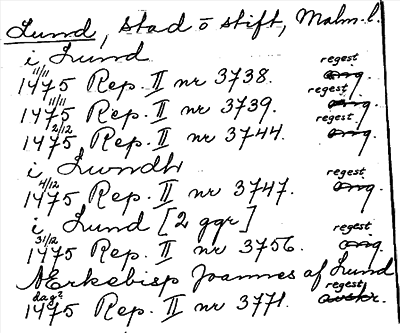 Lund, stad o stift, Malm. l.
i Lund
11/11 regest
1475 Rep. II nr 3738. orig.
11/11 regest
1475 Rep. II nr 3739. orig.
2/12 regest
1475 Rep. II nr 3744. orig.
i Lwndh
4/12 regest
1475 Rep. II nr 3747. orig.
i Lund [2 ggr]
31/12 regest
1475 Rep. II nr 3756. orig.
Ærkebisp Joannes af Lund
dag? regest
1475 Rep. II nr 3771. avskr.